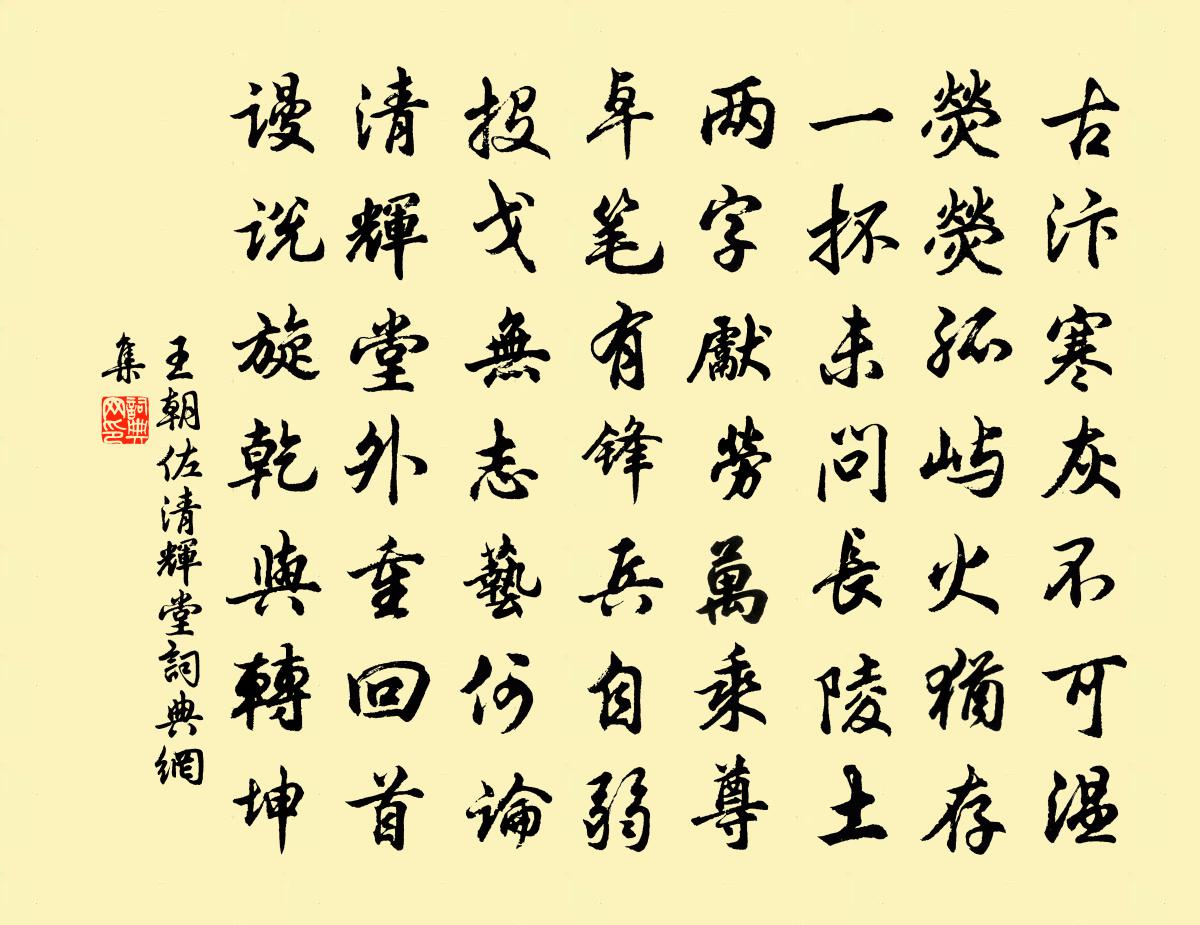 古汴寒灰不可温
熒熒孤屿火猶存
一抔未問長陵土
两字獻勞萬乘尊
卓笔有锋兵自弱
投戈無志藝何論
清輝堂外重回首
谩说旋乾與轉坤
王朝佐清輝堂詞典網
集
詞典
网印